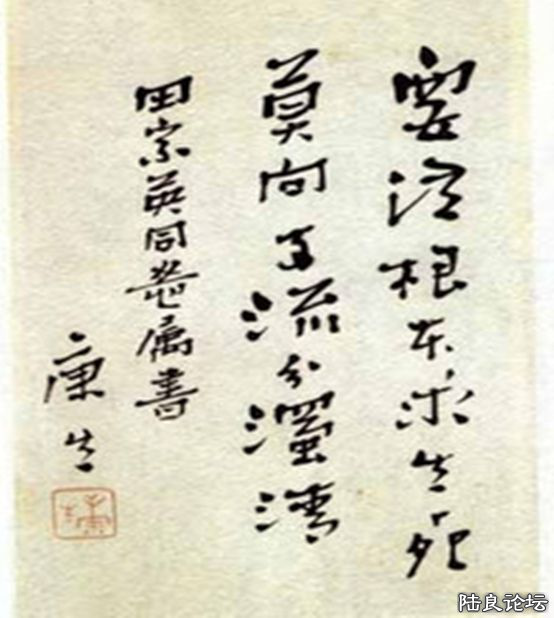 要從根本求生死
莫向支流分濁清
田家英同志属書
康生
陆良论坛